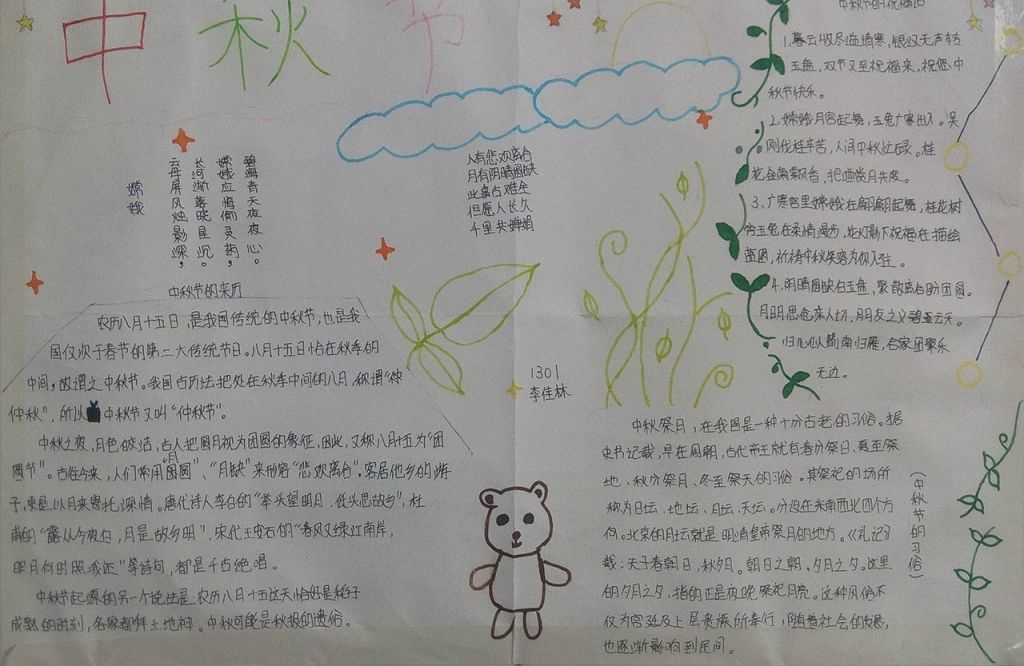 中秋节
中秋节的祝福语
1.暮云收尽溢清寒,银汉无声转
玉盘,双节又至祝福来,祝您中
秋节快乐。
2.嫦娥月宫起舞,玉兔广寒出入。吴
刚伐桂辛苦,人间中秋忙碌。桂
花金菊飘香,把酒赏月共度。
3.广寒宫里嫦娥在翩翩起舞,桂花树
旁玉兔在柔情漫步,花灯影下祝福在描绘
蓝图,祈祷中秋
4.阴晴圆缺白玉盘,聚散离合盼团圆。
月明思念亲人切,朋友之义碧蓝云天。
归心似箭南归雁,合家团聚乐
无边。
嫦娥
碧海青天夜夜心。
嫦娥应悔偷灵药,
长河渐落晓星沉。
云母屏风烛影深,
人有悲欢离合
月有阴晴圆缺
此事古难全
但愿人长久
千里共婵娟
中秋节的来历
农历八月十五日,是我国传统的中秋节,也是我
国仅次于春节的第二大传统节日。八月十五日恰在秋季的
中间,故谓之中秋节。我国古历法把处在秋季中间的八月,称谓“
仲秋”,所以中秋节又叫“仲秋节”。
中秋之夜,月色皎洁,古人把圆月视为团圆的象征,因此,又称八月十五为“团
圆节”。古往今来,人们常用“月圆”、“月缺”来形容“悲欢离合”,客居他乡的游
子,更是以月来寄托深情。唐代诗人李白的“举头望明月,低头思故乡”,杜
甫的“露从今夜白,月是故乡明”,宋代王安石的“春风又绿江南岸,
明月何时照我还”等诗句,都是千古绝唱。
中秋节起源的另一个说法是:农历八月十五这天恰好是稻子
成熟的时刻,各家都拜土地神。中秋可能是秋报的遗俗。
1301
李佳林
中秋祭月,在我国是一种十分古老的习俗。据
史书记载,早在周朝,古代帝王就有春分祭日、夏至祭
地、秋分祭月、冬至祭天的习俗。其祭祀的场所
称为日坛、地坛、月坛、天坛。分设在东南西北四个方
向。北京的月坛就是明清皇帝祭月的地方。《礼记》
载:天子春朝日,秋夕月。朝日之朝,夕月之夕。这里
的夕月之夕,指的正是夜晚祭祀月亮。这种风俗不
仅为宫廷及上层贵族所奉行,随着社会的发展,
也逐渐影响到民间。
(中秋节的习俗)